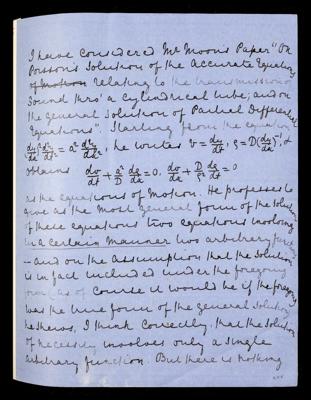 I have considered Mr Moon's Paper "On
Poisson's Solution of the Accurate Equations
of Motion relating to the transmission of
Sound thro' a Cylindrical tube; and on
the General Solution of Partial Differential
Equations". Starting from the equation
(dy/dx)² d²y/dt² = a² d²y/dx², he writes v = dy/dt, ρ = D(dy/dx)⁻¹, &
obtains dv/dt + a²/D dρ/dx = 0, dv/dx + D/ρ² dρ/dt = 0
as the equations of Motion. He professes to
give as the most general form of the solution
of these equations two equations involving
in a certain manner two arbitrary functions
— and on the assumption that the solution
is in fact included under the foregoing
form (as of course it would be if the foregoing
was the true form of the general solution)
he shews, I think correctly, that the solution
of necessity involves only a single
arbitrary function. But there is nothing